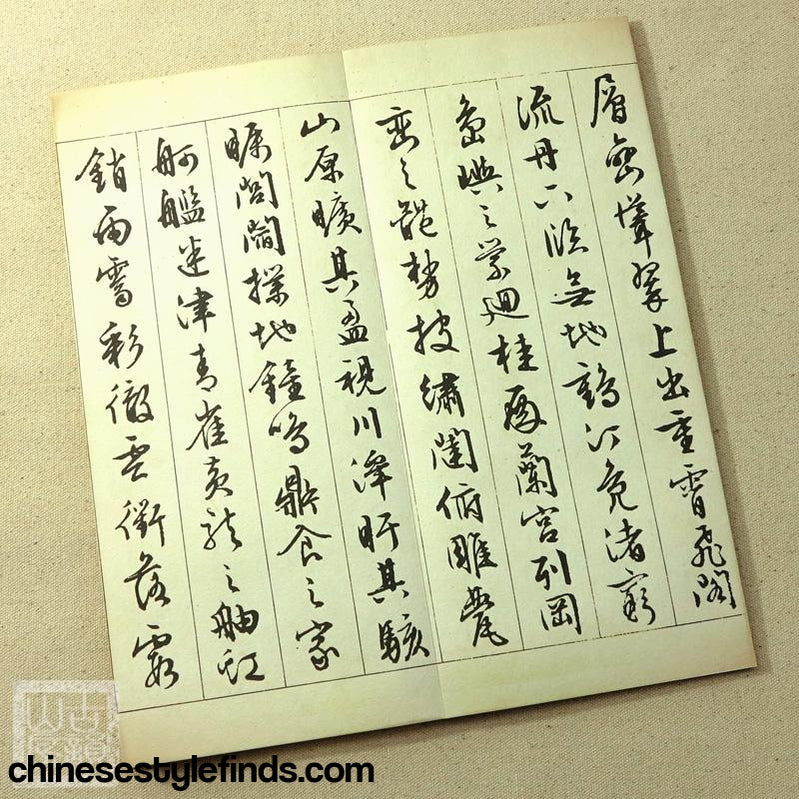 層巒聳翠上出重霄飛閣
流丹下臨無地鶴汀鳧渚窮
島嶼之縈迴桂殿蘭宮列岡
巒之體勢披繡闥俯雕甍
山原曠其盈視川澤盱其駭
矚閭閻撲地鐘鳴鼎食之家
舸艦迷津青雀黃龍之舳虹
銷雨霽彩徹雲衢落霞
chinesestylefinds.com